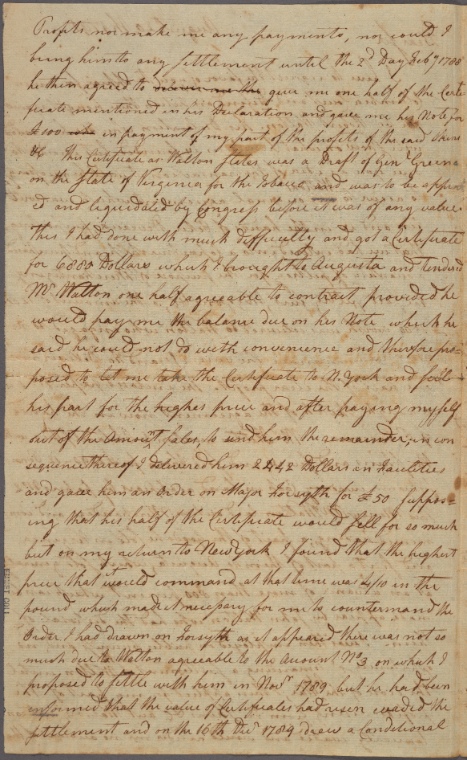 Profits nor make me any payments, nor could I
bring him to any Settlement until the 2d Day Feby 1788
he then agreed to give me one half of the Certi
ficate mentioned in his Declaration and gave me his Note for
£100 in payment of my part of the profits of the said
&c This Certificate as Walton states was a Draft of Genl Greene
on the State of Virginia for the Tobacco and was to be appro
d and liquidated by Congress before it was of any value.
This I had done with much difficulty and got a Certificate
for 6885 Dollars which I brought to Augusta and tendered
Mr Walton one half agreeable to contract, provided he
would pay me the balance due on his Note which he
said he could not do with convenience and therefore pro-
posed to let me take the Certificate to N. York and sell
his part for the highes price and after paying myself
out of the Amount sales, to send him the remainder, in con
sequence thereof I delivered him 2242 Dollars in Facilities
and gave him an Order on Major Forsyth for £50 suppos-
ing that his half of the Certificate would sell for so much
but on my return to New York I found that the highest
price that it would command at that time was 4/10 in the
pound, which made it necessary for me to countermand the
Order I had drawn on Forsyth as it appeared there was not so
much due to Walton agreeable to the Amount No. 3 on which I
proposed to settle with him in Novr 1789 but he had been
informed that the value of Certificates had risen evaded the
settlement and on the 16th Decr 1789 drew a Conditional